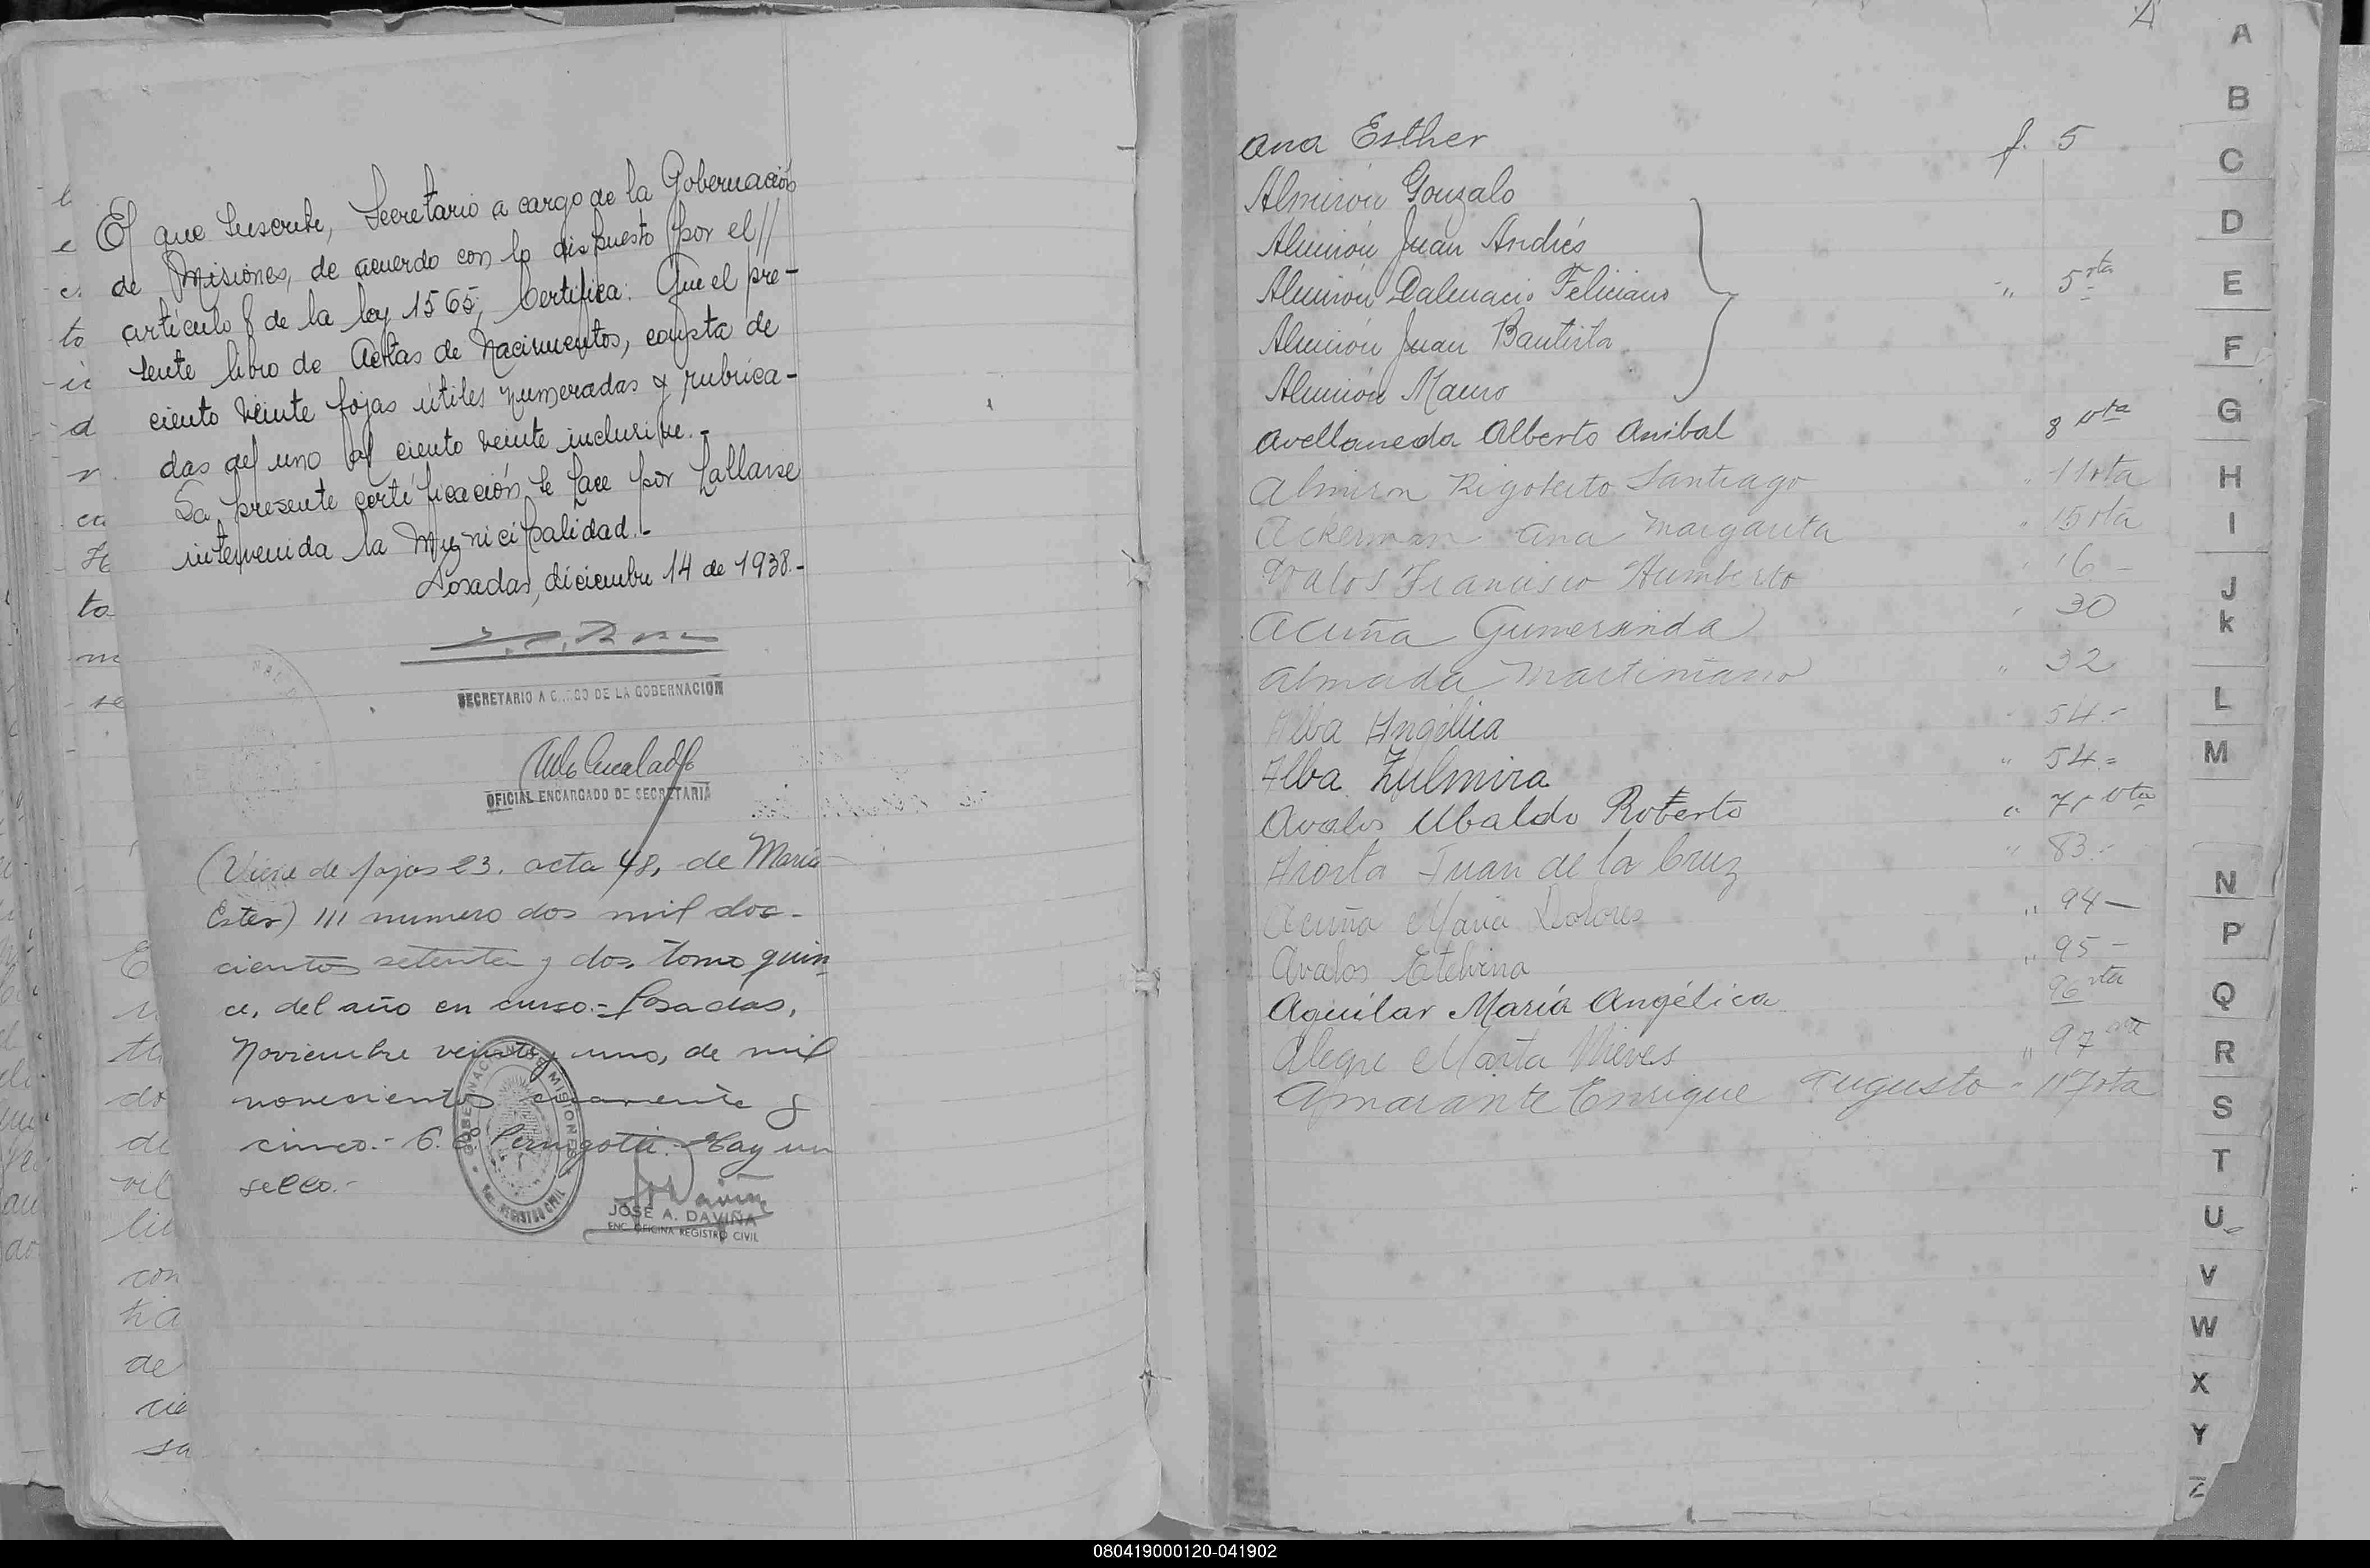 El que suscribe, Secretario a cargo de la Gobernación
de Misiones, de acuerdo con lo dispuesto por el //
artículo 8 de la ley 1565, Certifica: Que el pre-
sente libro de Actas de Nacimientos, consta de
ciento veinte fojas útiles numeradas y rubrica-
das del uno al ciento veinte inclusive.-
La presente certificación se hace por hallarse
intervenida la Municipalidad.-
Posadas, diciembre 14 de 1938.-
SECRETARIO A CARGO DE LA GOBERNACIÓN
OFICIAL ENCARGADO DE SECRETARIA
(Viene de fojas 23. acta 48, de María
Ester) /// numero dos mil dos-
cientos setenta y dos, tomo quin
ce, del año en curso.= Posadas,
Noviembre veinte y uno, de mil
novecientos cuarenta y
cinco.- Perugotti.- Hay un
sello.-
GOBERNACION DE MISIONES
REGISTRO CIVIL
JOSÉ A. DAVIÑA
ENC. OFICINA REGISTRO CIVIL
A
Ana Esther f. 5
Almirón Gonzalo
Almirón Juan Andrés
Almirón Dalmacio Feliciano " 5 vta
Almirón Juan Bautista
Almirón Mauro
Avellaneda Alberto Anibal 8 vta
Almiron Rigoberto Santiago " 11 vta
Ackerman Ana Margarita " 15 vta
Avalos Francisco Humberto " 16 -
Acuña Gumersinda " 30
Almada Martiniano " 32
Alba Angélica 54.-
Alba Zulmira " 54.=
Avalos Ubaldo Roberto " vta
Acosta Juan de la Cruz " 83.-
Acuña María Dolores " 94 —
Avalos Etelvina " 95 -
Aguilar María Angélica 96 vta
Alegre Marta Nieves " 97 vta
Amarante Enrique Augusto - " 117 vta
A
B
C
D
E
F
G
H
I
J
k
L
M
N
P
Q
R
S
T
U
V
W
X
Y
Z
080419000120-041902